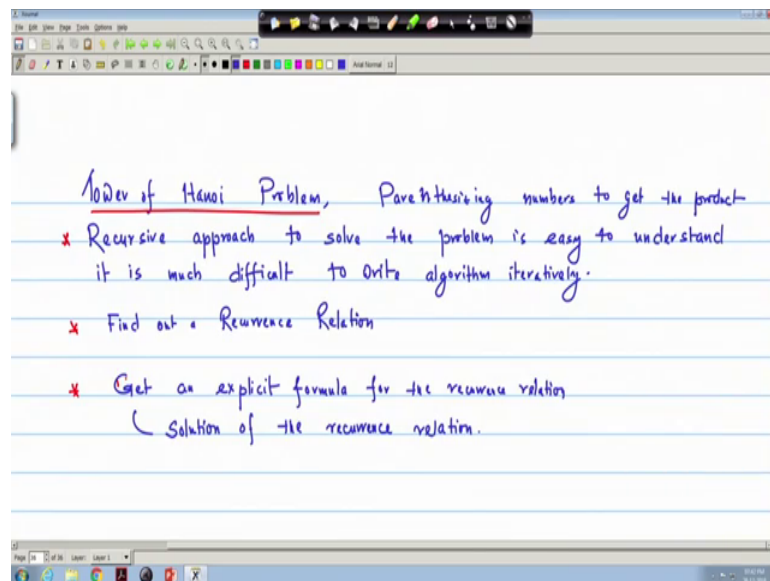 Journal
File Edit View Page Tools Options Help
Arial Normal 12
Tower of Hanoi Problem, Parenthesizing numbers to get the product
* Recursive approach to solve the problem is easy to understand
it is much difficult to write algorithm iteratively.
* Find out a Recurrence Relation
* Get an explicit formula for the recurrence relation
Solution of the recurrence relation.
Page 36 of 36 Layer: Layer 1